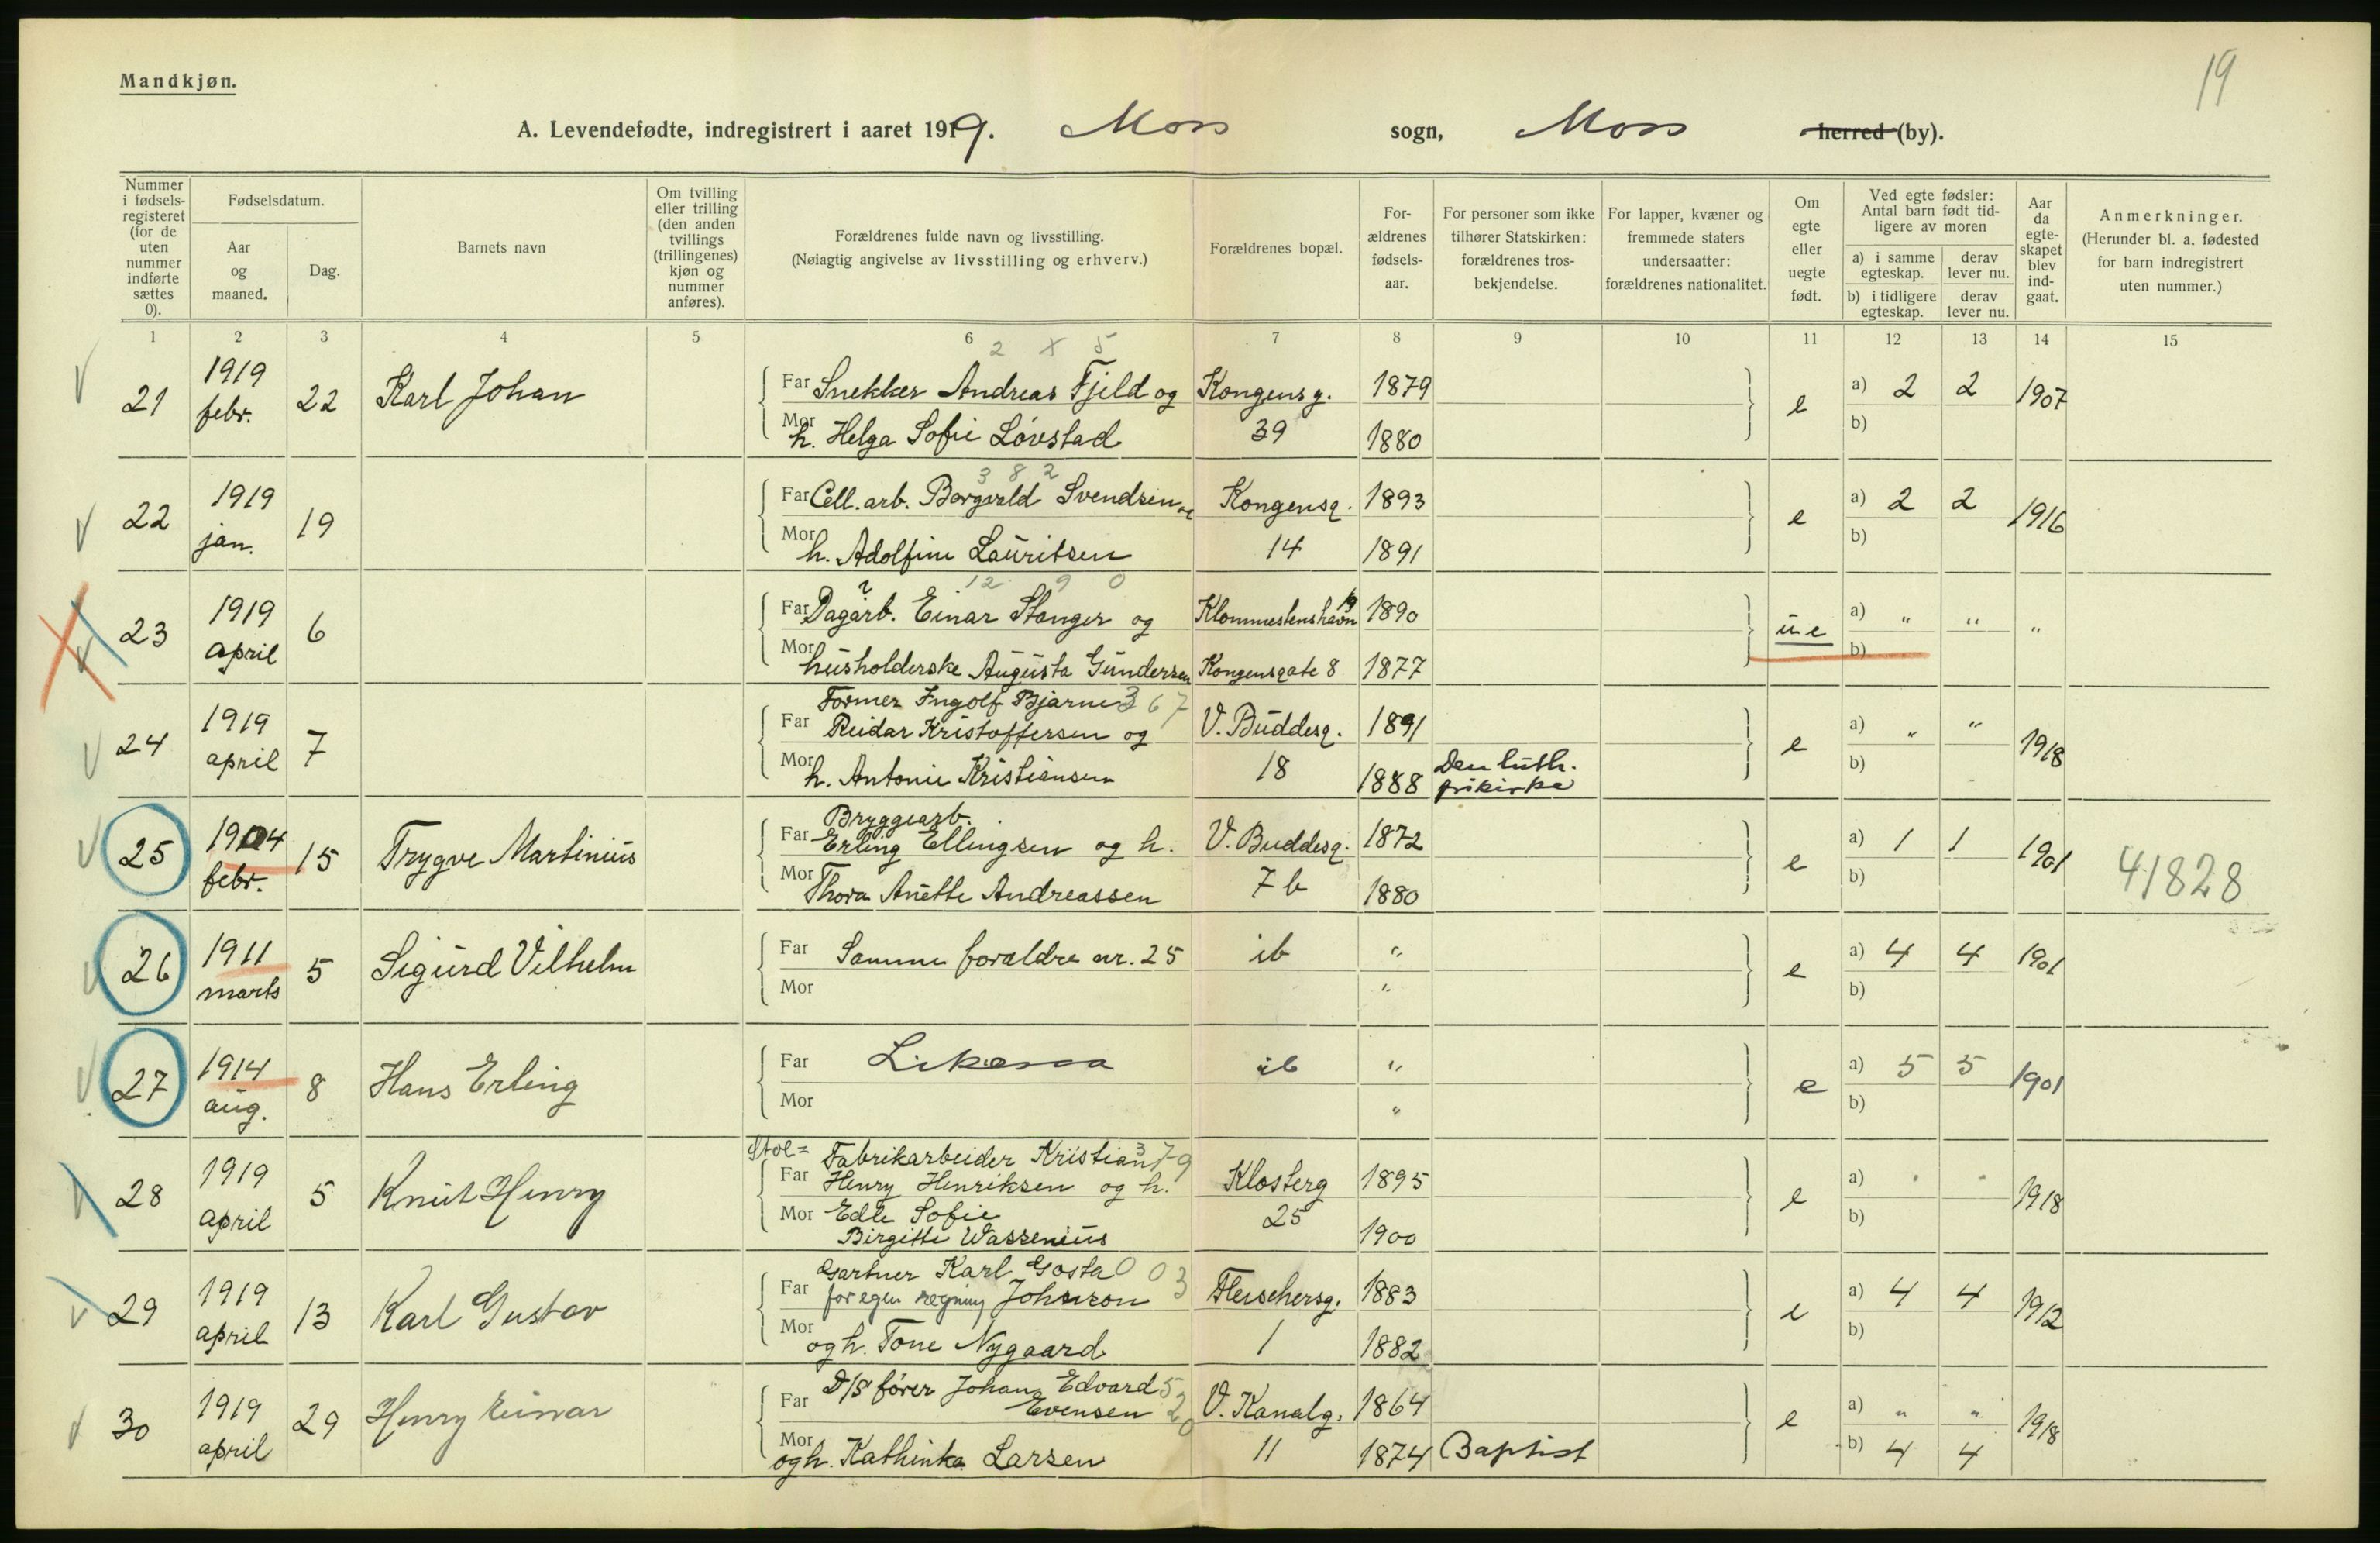 19
Mandkjøn.
A. Levendefødte, indregistrert i aaret 1919. Moss sogn, Moss herred (by).
Nummer i fødsels-registeret (for de uten nummer indførte sættes 0).
Fødselsdatum.
Aar og maaned.
Dag.
Barnets navn
Om tvilling eller trilling (den anden tvillings (trillingenes) kjøn og nummer anføres).
Forældrenes fulde navn og livsstilling.
(Nøiagtig angivelse av livsstilling og erhverv.)
Forældrenes bopæl.
For-ældrenes fødsels-aar.
For personer som ikke tilhører Statskirken: forældrenes tros-bekjendelse.
For lapper, kvæner og fremmede staters undersaatter: forældrenes nationalitet.
Om egte eller uegte født.
Ved egte fødsler: Antal barn født tid-ligere av moren
a) i samme egteskap.
derav lever nu.
b) i tidligere egteskap.
derav lever nu.
Aar da egte-skapet blev ind-gaat.
Anmerkninger.
(Herunder bl. a. fødested for barn indregistrert uten nummer.)
1 2 3 4 5 6 7 8 9 10 11 12 13 14 15
2 X 5
21 1919 febr. 22 Karl Johan
Far Snekker Andreas Fjeld og Kongensg. 1879 e a) 2 2 1907
Mor h. Helga Sofie Løvstad 39 1880 b)
3 8 2
22 1919 jan. 19
Far Cell. arb. Borgvald Svendsen og Kongensg. 1893 e a) 2 2 1916
Mor h. Adolfine Lauritsen 14 1891 b)
12 9 0
23 1919 april 6
Far Dagarb. Einar Stanger og Klommestenshavn 19 1890 u e a) " " "
Mor husholderske Augusta Gundersen Kongensgate 8 1877 b)
24 1919 april 7
Former Ingolf Bjarne 3 6 7
Far Reidar Kristoffersen og V. Buddesg. 1891 e a) " " 1918
Mor h. Antonie Kristiansen 18 1888 Den luth. frikirke b)
25 1904 febr. 15 Trygve Martinius
Bryggearb.
Far Erling Ellingsen og h. V. Buddesg. 1872 e a) 1 1 1901 41828
Mor Thora Anette Andreassen 7 b 1880 b)
26 1911 marts 5 Sigurd Vilhelm
Far Samme forældre nr. 25 ib " e a) 4 4 1901
Mor " b)
27 1914 aug. 8 Hans Erling
Far Likesaa ib " e a) 5 5 1901
Mor " b)
28 1919 april 5 Knut Henry
Stol= Fabrikarbeider Kristian 3 7 9
Far Henry Henriksen og h. Klosterg 1895 e a) 1918
Mor Edle Sofie 25 b)
Birgitte Wassenius 1900
29 1919 april 13 Karl Gustav
Gartner Karl Gøsta 0 0 3
Far for egen regning Johnson Fleischersg. 1883 e a) 4 4 1912
Mor og h. Tone Nygaard 1 1882 b)
30 1919 april 29 Henry Einar
D/S fører Johan Edvard 5 2 0
Far Evensen V. Kanalg. 1864 e a) " " 1918
Mor og h. Kathinka Larsen 11 1874 Baptist b) 4 4